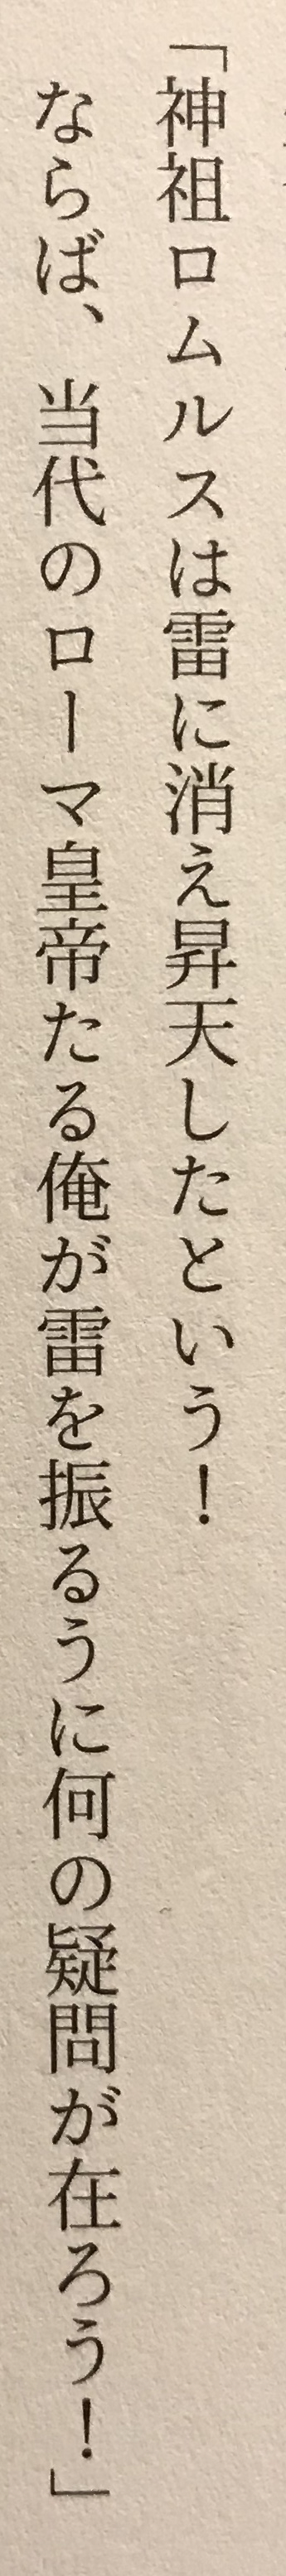 「神祖ロムルスは雷に消え昇天したという！
ならば、当代のローマ皇帝たる俺が雷を振るうに何の疑問が在ろう！」